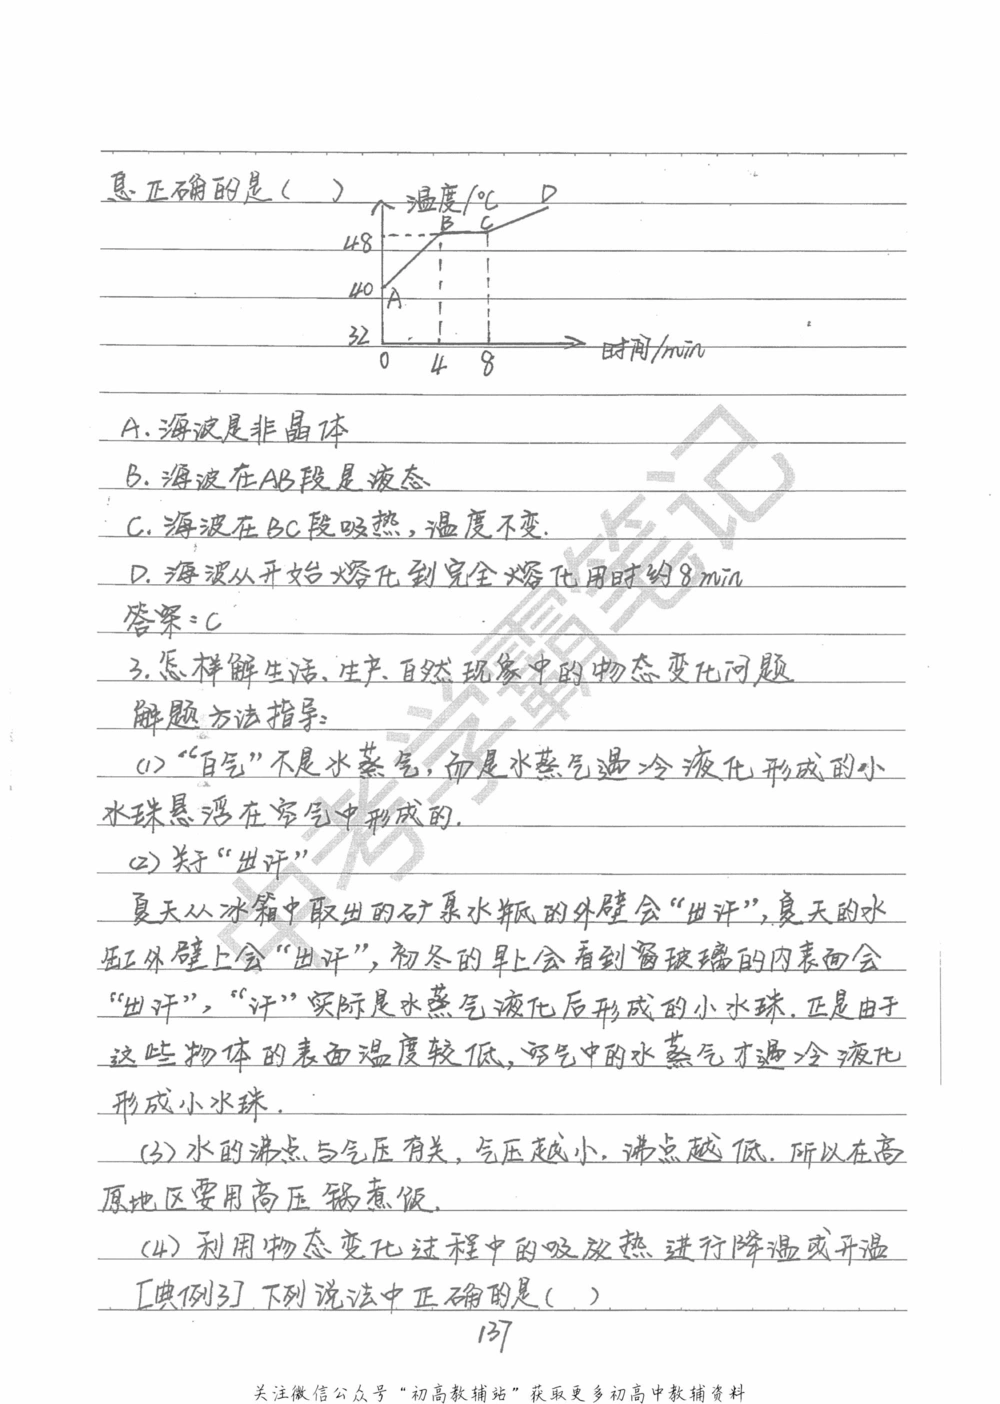 息正确的是( )
温度/℃
D
B C
48
40
A
32
0 4 8
时间/min
A.海波是非晶体
B.海波在AB段是液态
C.海波在BC段吸热,温度不变.
D.海波从开始熔化到完全熔化用时约8min
答案:C
3.怎样解生活、生产、自然现象中的物态变化问题
解题方法指导:
(1)“白气”不是水蒸气,而是水蒸气遇冷液化形成的小
水珠悬浮在空气中形成的.
(2)关于“出汗”
夏天从冰箱中取出的矿泉水瓶的外壁会“出汗”,夏天的水
缸外壁上会“出汗”,初冬的早上会看到窗玻璃的内表面会
“出汗”,“汗”实际是水蒸气液化后形成的小水珠.正是由于
这些物体的表面温度较低,空气中的水蒸气才遇冷液化
形成小水珠.
(3)水的沸点与气压有关,气压越小,沸点越低.所以在高
原地区要用高压锅煮饭.
(4)利用物态变化过程中的吸放热进行降温或升温
[典例3]下列说法中正确的是( )
137
中考学霸笔记
关注微信公众号“初高教辅站”获取更多初高中教辅资料